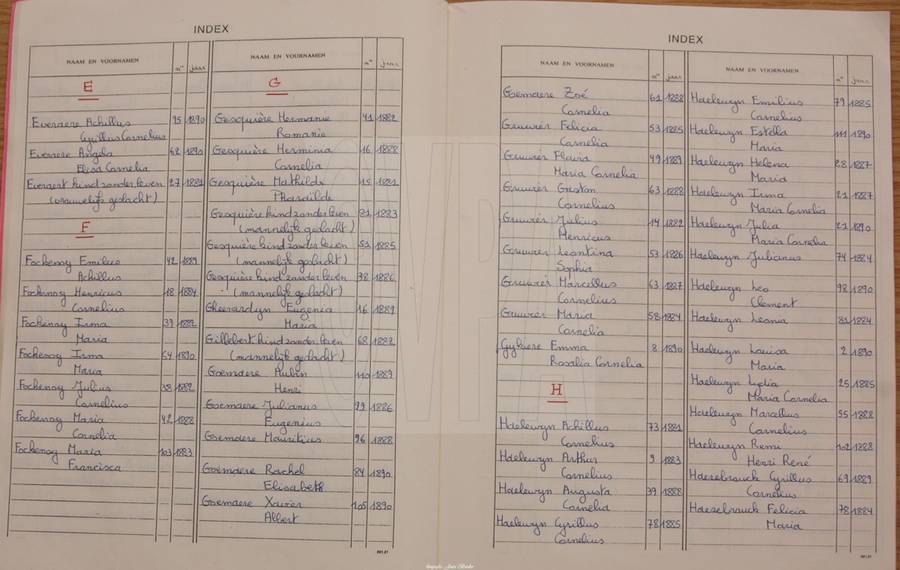 INDEX
NAAM EN VOORNAMEN n° jaar
E
Everaere Achillus 95 1890
Cyrillus Cornelius
Everaere Angela 62 1890
Elisa Cornelia
Everaert kind zonder leven 27
(vrouwelijk geslacht)
F
Fockenoy Emilius 42
Achillus
Fockenoy Henricus 18 1884
Cornelius
Fockenoy Irma 39 1882
Maria
Fockenoy Irma 64 1890
Maria
Fockenoy Julius 1882
Cornelius
Fockenoy Maria 42 1888
Cornelia
Fockenoy Maria 103 1883
Francisca
NAAM EN VOORNAMEN n° jaar
G
Gesquière Hermanie 41 1882
Romanie
Gesquière Hermina 16 1888
Cornelia
Gesquière Mathilde 15 1881
Pharaïlde
Gesquière kind zonder leven 21 1883
(mannelijk geslacht)
Gesquière kind zonder leven 51 1885
(mannelijk geslacht)
Gesquière kind zonder leven 78 1886
(mannelijk geslacht)
Gheerardyn Eugenia 16 1889
Maria
Gillebert kind zonder leven 68 1882
(mannelijk geslacht)
Goemaere Ruben 110 1889
Henri
Goemaere Julianus 99 1886
Eugenius
Goemaere Mauritius 96 1888
Goemaere Rachel 84 1890
Elisabeth
Goemaere Xavier 105 1890
Albert
INDEX
NAAM EN VOORNAMEN n° jaar
Goemaere Zoé 61 1888
Cornelia
Gruwier Felicia 53 1885
Cornelia
Gruwier Flavia 49 1889
Maria Cornelia
Gruwier Gaston 63 1888
Cornelius
Gruwier Julius 14 1882
Henricus
Gruwier Leontina 53 1886
Sophia
Gruwier Marcellus 63 1887
Cornelius
Gruwier Maria 58 1884
Cornelia
Gykiere Emma 8 1890
Rosalia Cornelia
H
Haelewyn Achillus 73 1881
Cornelius
Haelewyn Arthur 9 1883
Cornelius
Haelewyn Augusta 39 1888
Cornelia
Haelewyn Cyrillus 78 1885
Cornelius
NAAM EN VOORNAMEN n° jaar
Haelewyn Emilius 79 1885
Cornelius
Haelewyn Estella 111 1890
Maria
Haelewyn Helena 28 1887
Maria
Haelewyn Irma 21 1887
Maria Cornelia
Haelewyn Julia 21 1890
Maria Cornelia
Haelewyn Julianus 74 1884
Haelewyn Leo 98 1890
Clement
Haelewyn Leonia 81 1884
Haelewyn Louisa 2 1890
Maria
Haelewyn Lydia 25 1885
Maria Cornelia
Haelewyn Marcellus 55 1888
Cornelius
Haelewyn Remi 102 1888
Henri René
Haezebrouck Cyrillus 69 1889
Cornelius
Haezebrouck Felicia 78 1884
Maria